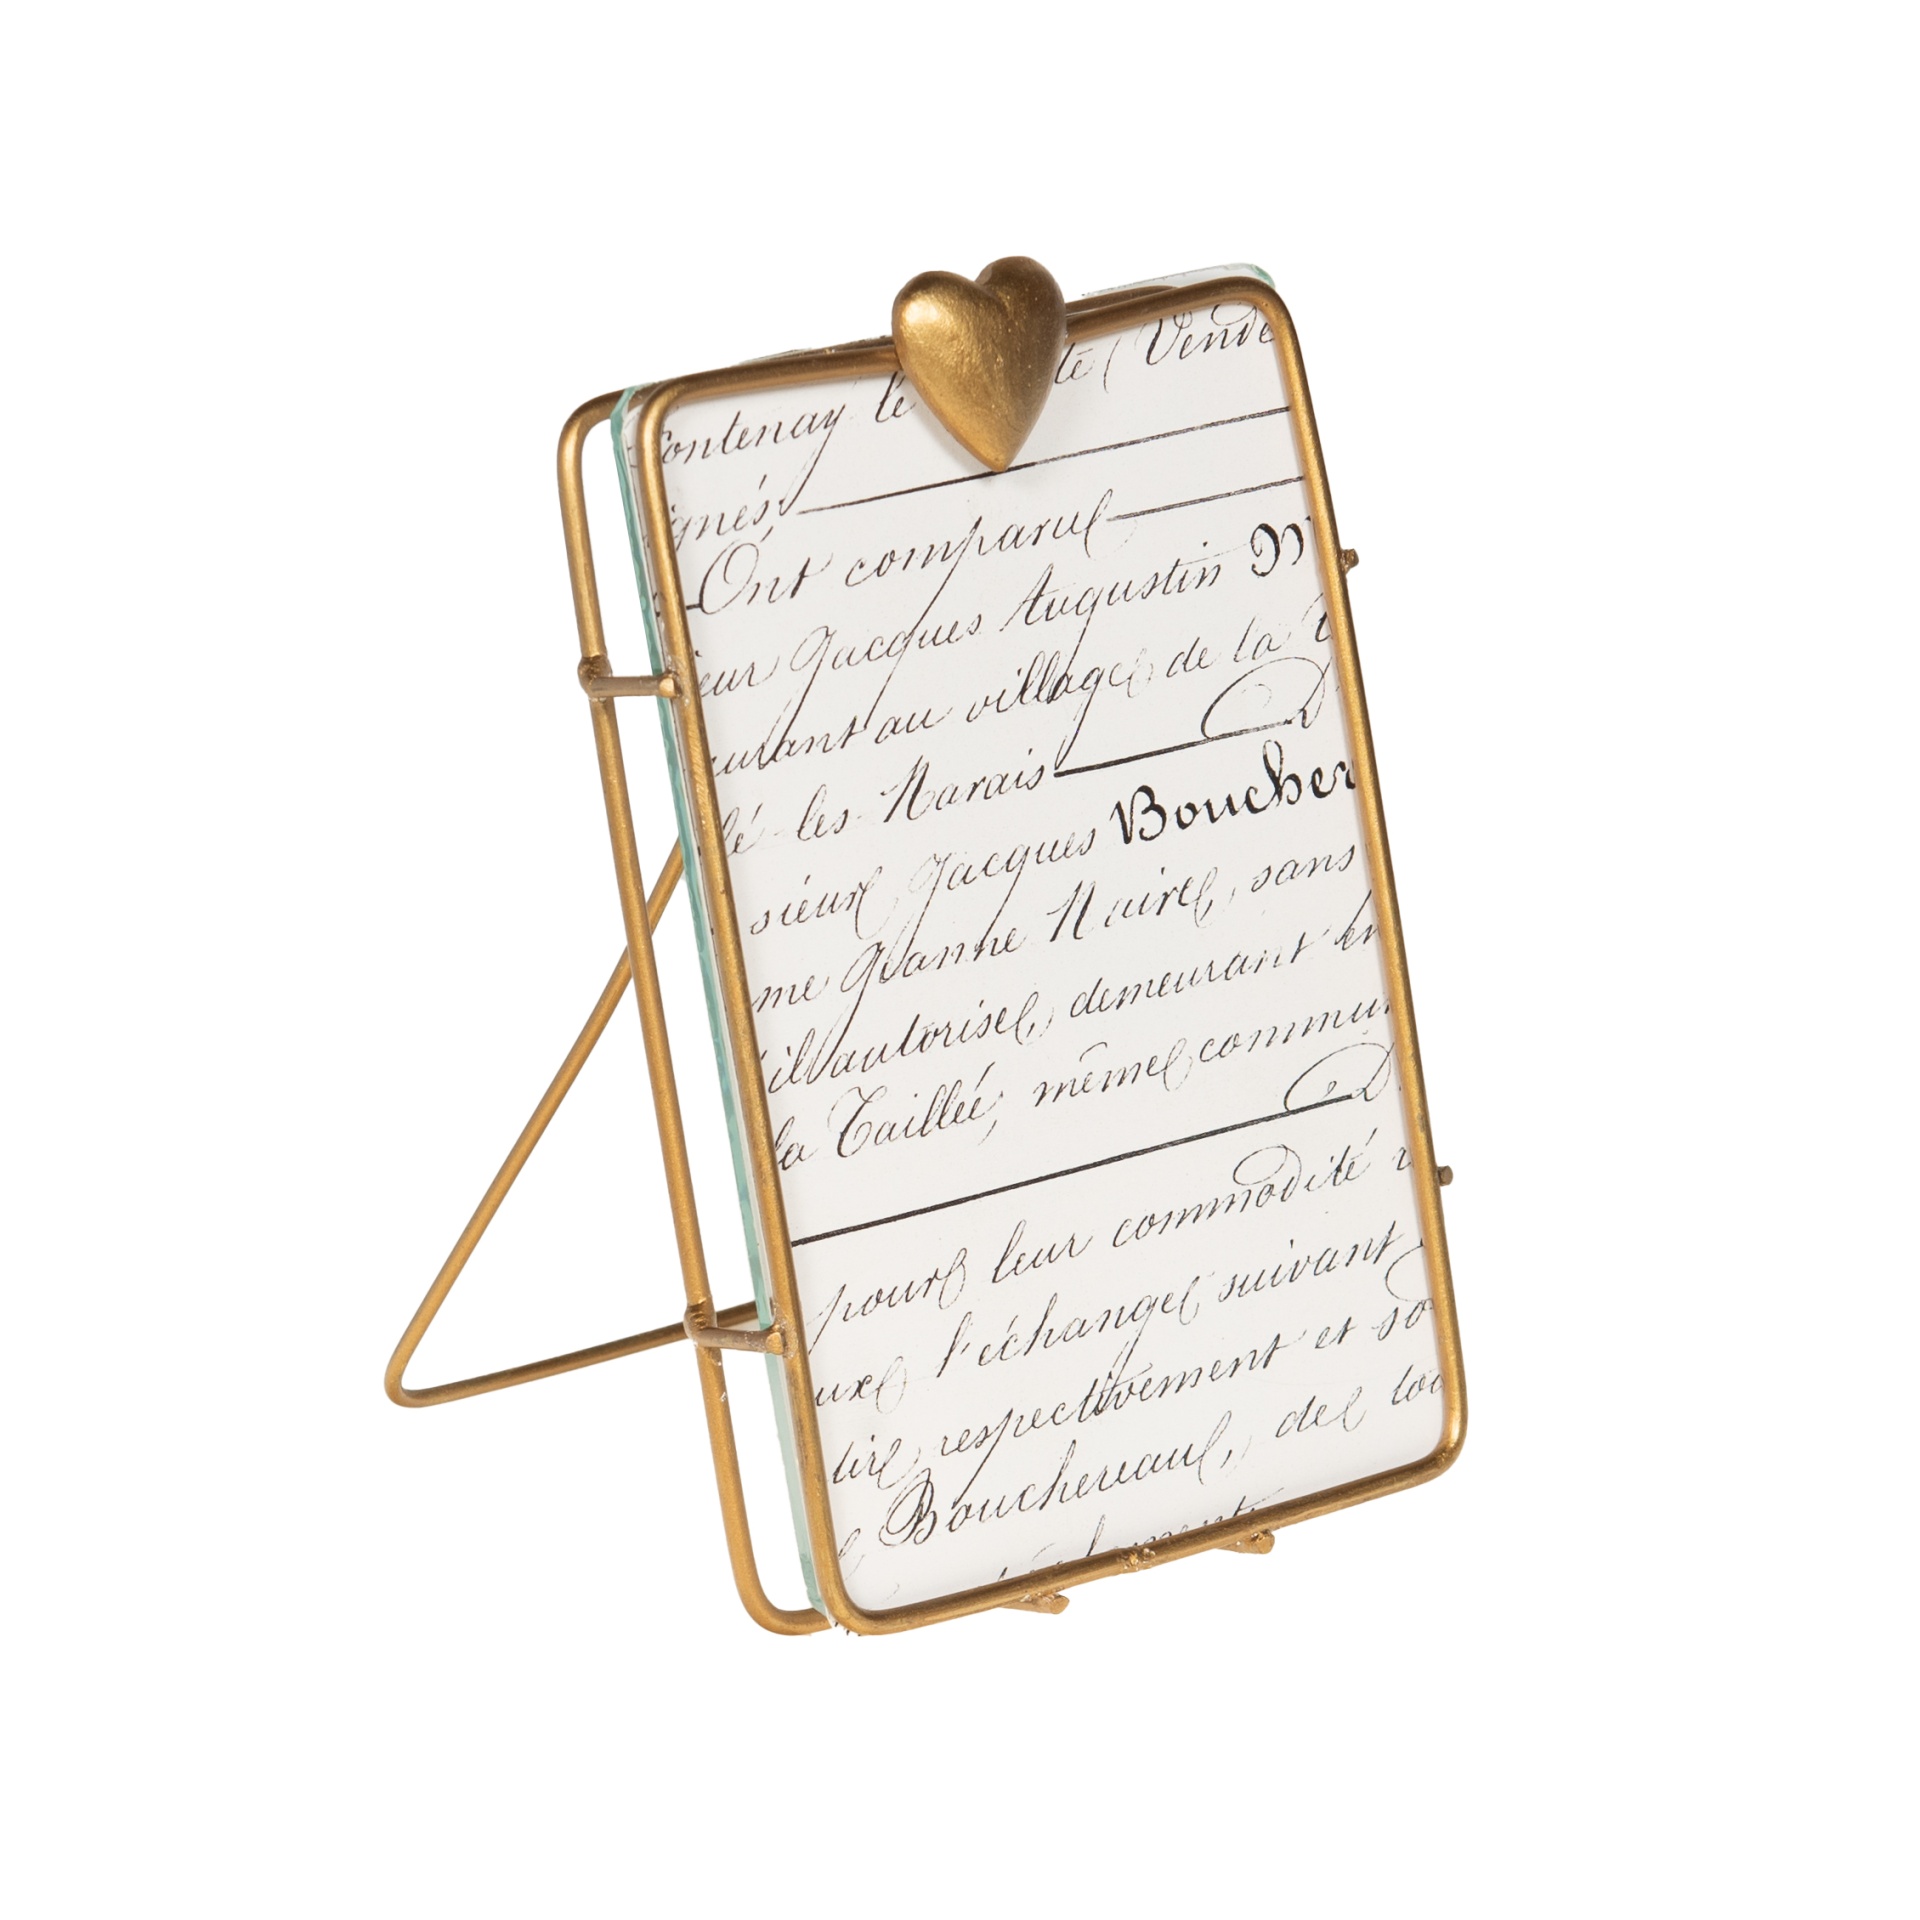 Fontenay le te (Vende
ignés,
Ont comparu
ieur Jacques Augustin M
eurant au village de la
lé les Marais
sieur Jacques Boucher
me Jeanne Naire, sans
'il autorise, demeurant en
la Taillée, même commun
pour leur commodité
ux l'échange suivant
tire respectivement et so
Bouchereau, de tou